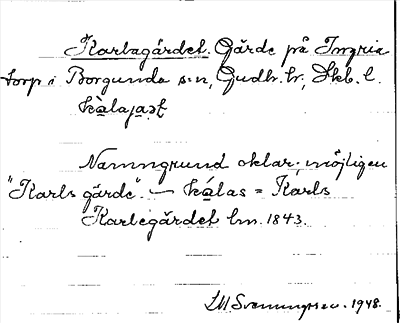 Karlagärdet. Gärde på Ingrie
torp i Borgunda s:n, Gudh. hr, Skb. l.
kàlajaət
Namngrund oklar; möjligen
"Karls gärde". — kálas = Karls
Karlegärdet lm. 1843.
1948.